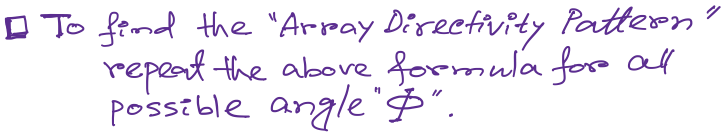 □ To find the "Array Directivity Pattern"
repeat the above formula for all
possible angle "Φ".